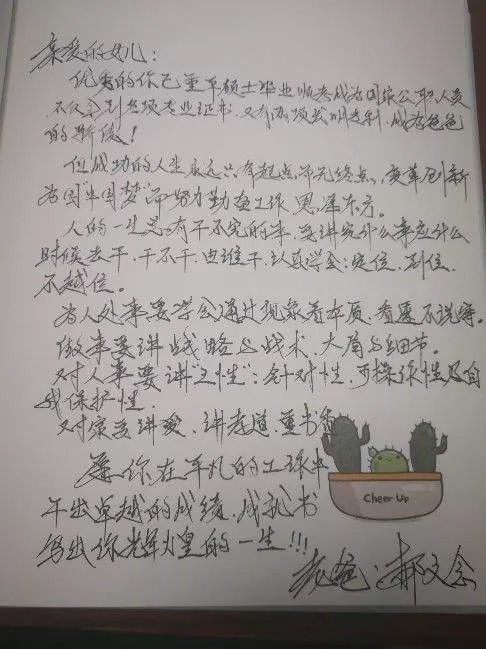 亲爱的女儿：
优秀的你已重车硕士毕业顺考成为国家公职人员
不仅拿到各项专业证书，又有两项发明专利，成为爸爸
的骄傲！
但成功的人生永远只有起点而无终点，变革创新
为国"中国梦"而努力勤奋工作
人的一生总有干不完的事，要讲究什么事应什么
时候去干，干不干，由谁干，认真学会：定位、到位、
不越位。
为人处事要学会通过现象看本质，看透不说透。
做事要讲战略与战术，大局与细节。
对人事要讲"三性"：针对性，可操作性及自
我保护性
对家要讲爱，讲孝道，重书香
愿你在平凡的工作中
干出卓越的成绩，成就书
写出你辉煌的一生!!!
老爸：郝文会
Cheer Up